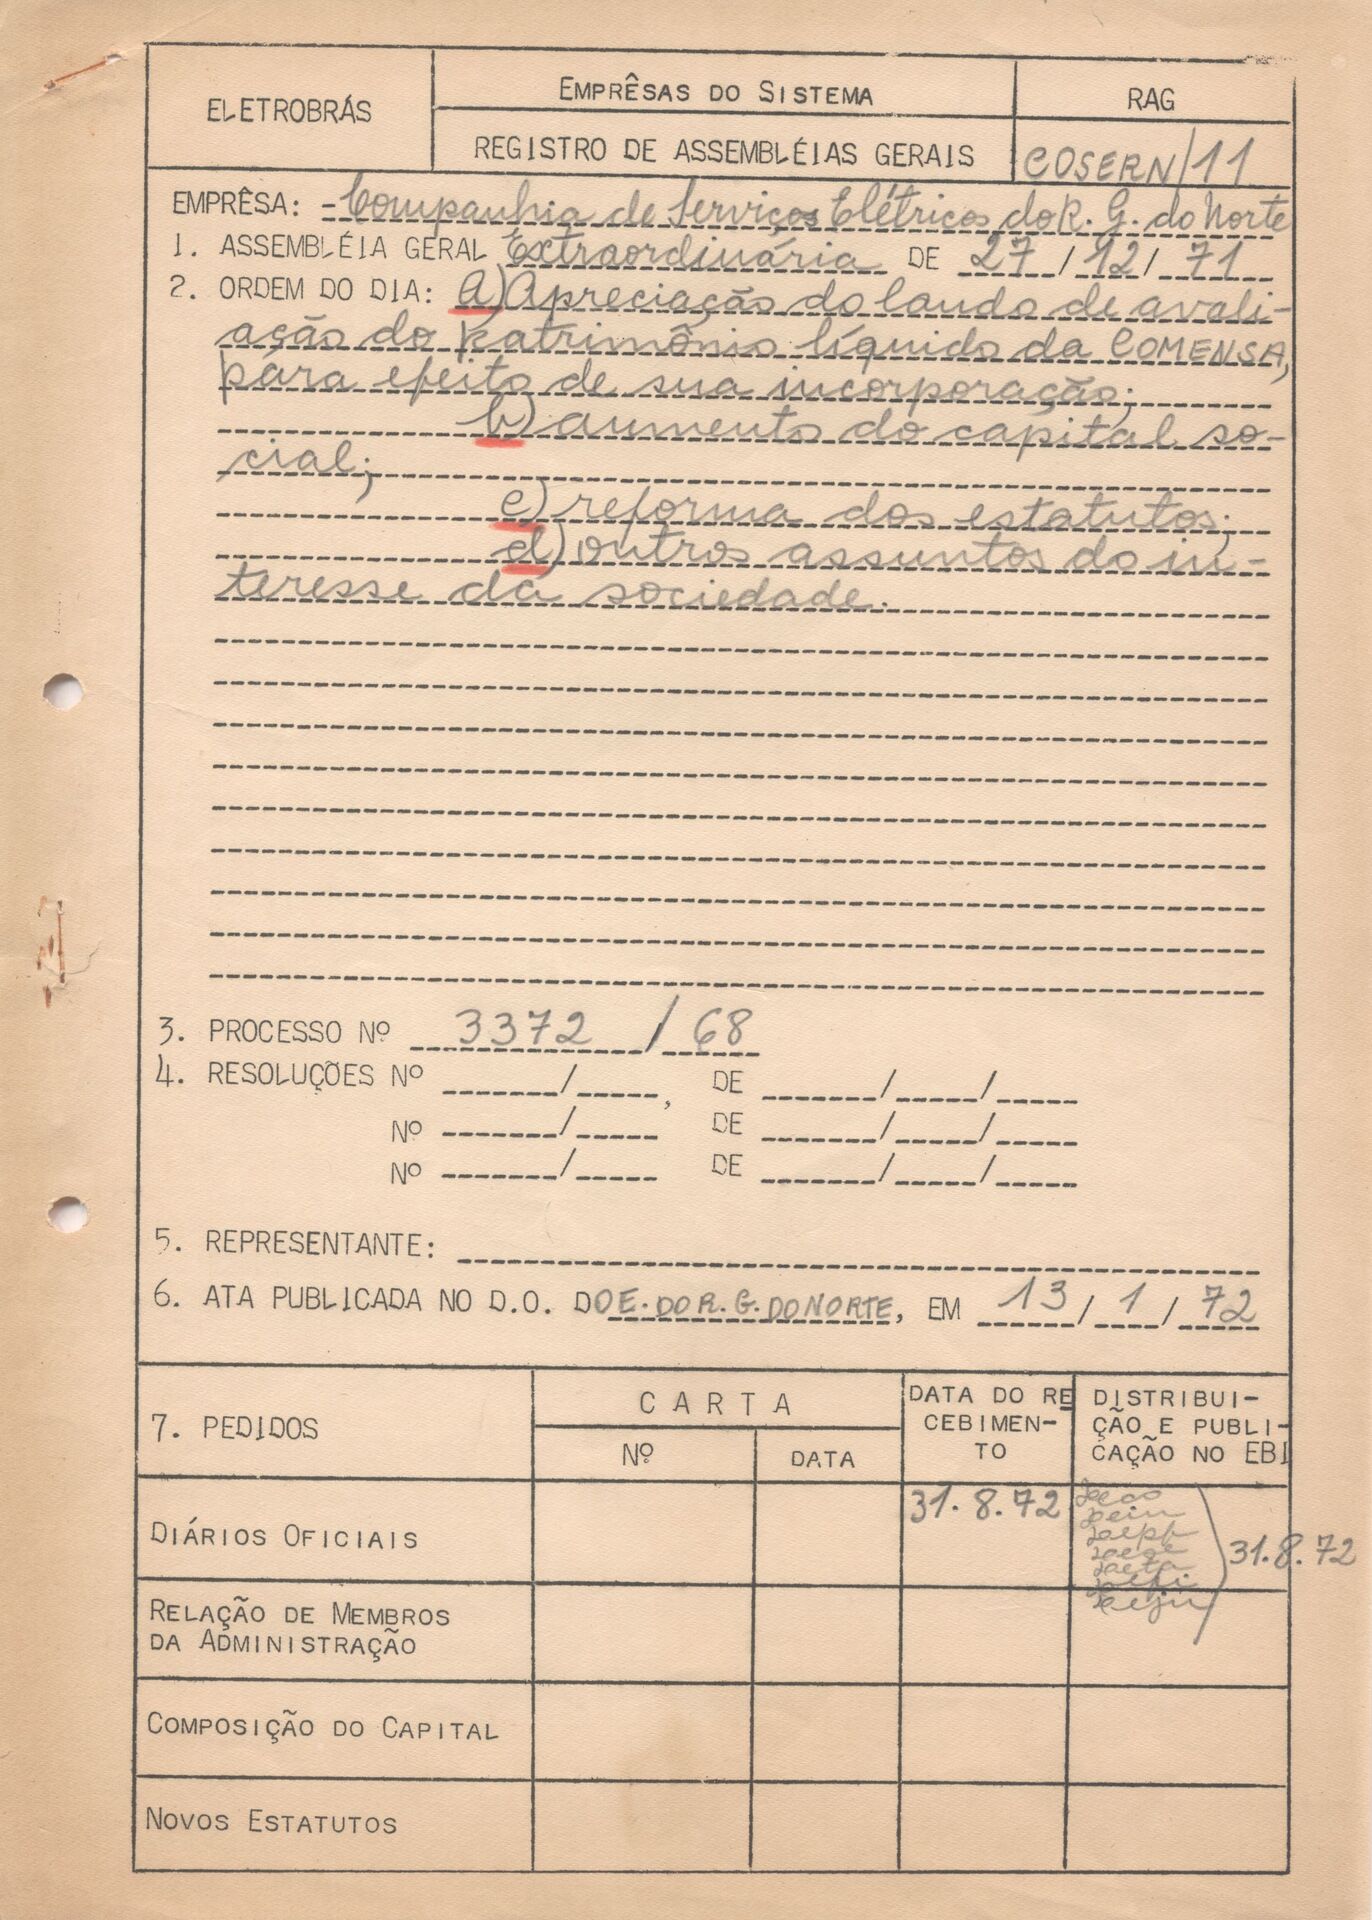 ELETROBRÁS
EMPRÊSAS DO SISTEMA
REGISTRO DE ASSEMBLÉIAS GERAIS
RAG
COSERN/11
EMPRÊSA: - Companhia de Serviços Elétricos do R. G. do Norte
1. ASSEMBLÉIA GERAL Extraordinária DE 27/12/71
2. ORDEM DO DIA: a) Apreciação do laudo de avali-
ação do patrimônio líquido da COMENSA,
para efeito de sua incorporação;
b) aumento do capital so-
cial;
c) reforma dos estatutos;
d) outros assuntos do in-
teresse da sociedade.
3. PROCESSO Nº 3372 / 68
4. RESOLUÇÕES Nº / , DE / /
Nº / DE / /
Nº / DE / /
5. REPRESENTANTE:
6. ATA PUBLICADA NO D.O. DO E. DO R. G. DO NORTE, EM 13 / 1 / 72
7. PEDIDOS
CARTA
Nº
DATA
DATA DO RE
CEBIMEN-
TO
DISTRIBUI-
ÇÃO E PUBLI-
CAÇÃO NO EBI
DIÁRIOS OFICIAIS
31.8.72
31.8.72
RELAÇÃO DE MEMBROS
DA ADMINISTRAÇÃO
COMPOSIÇÃO DO CAPITAL
NOVOS ESTATUTOS